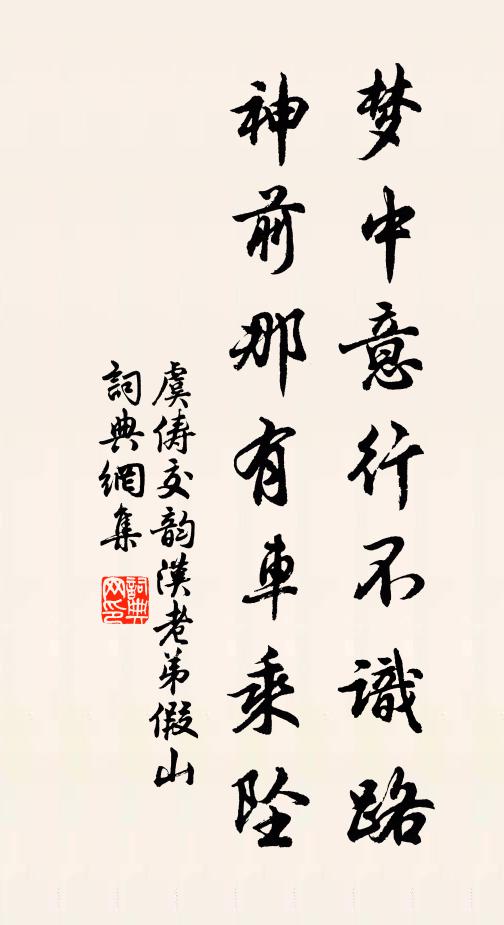 梦中意行不識路
神前那有車乘墜
虞俦交韵漢老弟假山
詞典網集
詞典网印